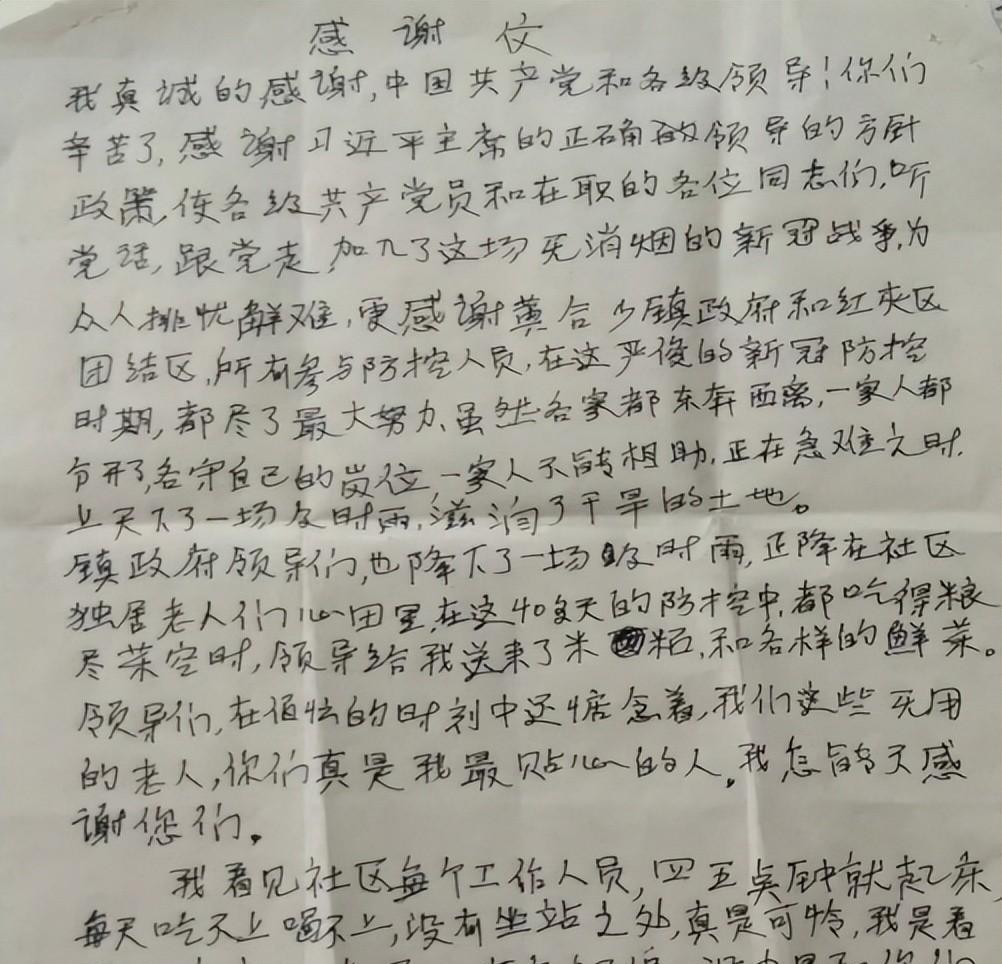 感谢仗
我真诚的感谢,中国共产党和各级领导!你们
辛苦了,感谢习近平主席的正确的领导的方针
政策,使各级共产党员和在职的各位同志们,听
党话,跟党走,加入了这场无消烟的新冠战争,为
众人排忧解难,更感谢 合少镇政府和红夹区
团结区,所有参与防控人员,在这严俊的新冠防控
时期,都尽了最大努力,虽然各家都东奔西离,一家人都
分开了,各守自己的岗位,一家人不能相助,正在急难之时,
上天下了一场及时雨,滋润了干旱的土地。
镇政府领导们,也降下了一场及时雨,正降在社区
独居老人们心田里,在这40多天的防控中,都吃得粮
尽菜空时,领导给我送来了米 和各样的鲜菜。
领导们,在百忙的时刻中还惦念着,我们这些无用
的老人,你们真是我最贴心的人。我怎能不感
谢您们。
我看见社区每个工作人员,四五点钟就起床,
每天吃不上喝不上,没有坐站之处,真是可怜,我是看